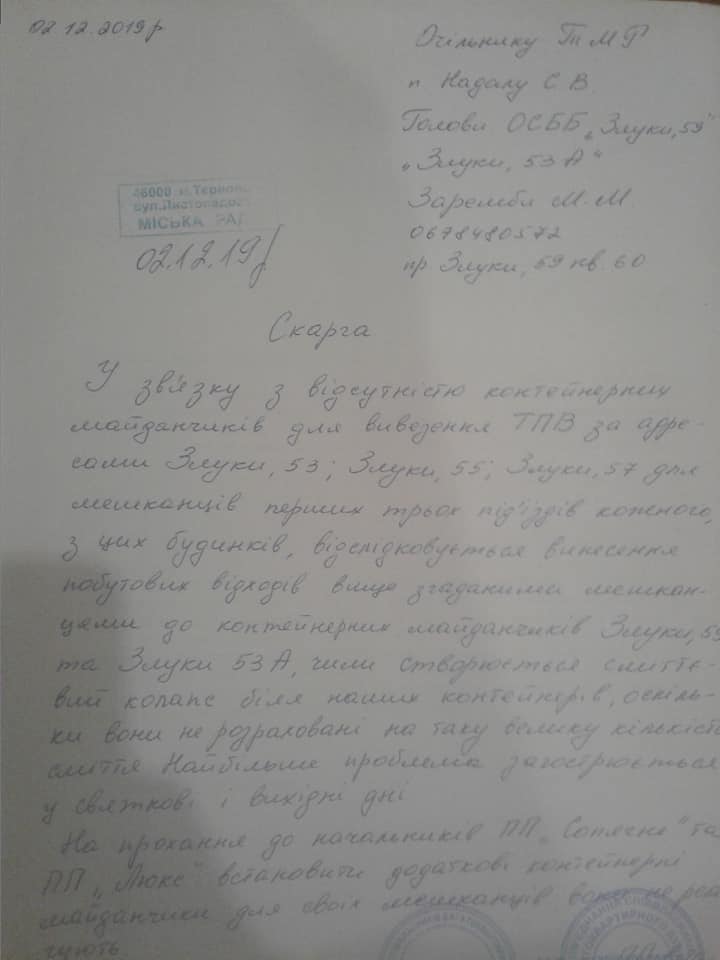 02.12.2019р
Очільнику ТМР
п Надалу С В.
Голови ОСББ „Злуки, 59"
„Злуки, 53 А"
Заремба М. М.
0678480572
пр Злуки, 59 кв. 60
46000 м.Терноп
вул.Листопадо
МІСЬКА РАД
02.12.19р
Скарга
У зв'язку з відсутністю контейнерних
майданчиків для вивезення ТПВ за адре-
сами Злуки, 53; Злуки, 55; Злуки, 57 для
мешканців перших трьох під'їздів кожного,
з цих будинків, відслідковується винесення
побутових відходів вище згаданими мешкан-
цями до контейнерних майданчиків Злуки, 59
та Злуки 53 А, чим створюється смittє-
вий колапс біля наших контейнерів, оскіль-
ки вони не розраховані на таку велику кількість
сміття Найбільше проблема загострюється
у святкові і вихідні дні
На прохання до начальників ПП та
ПП „Люкс" встановити додаткові контейнерні
майданчики для своїх мешканців вони не реа
гують